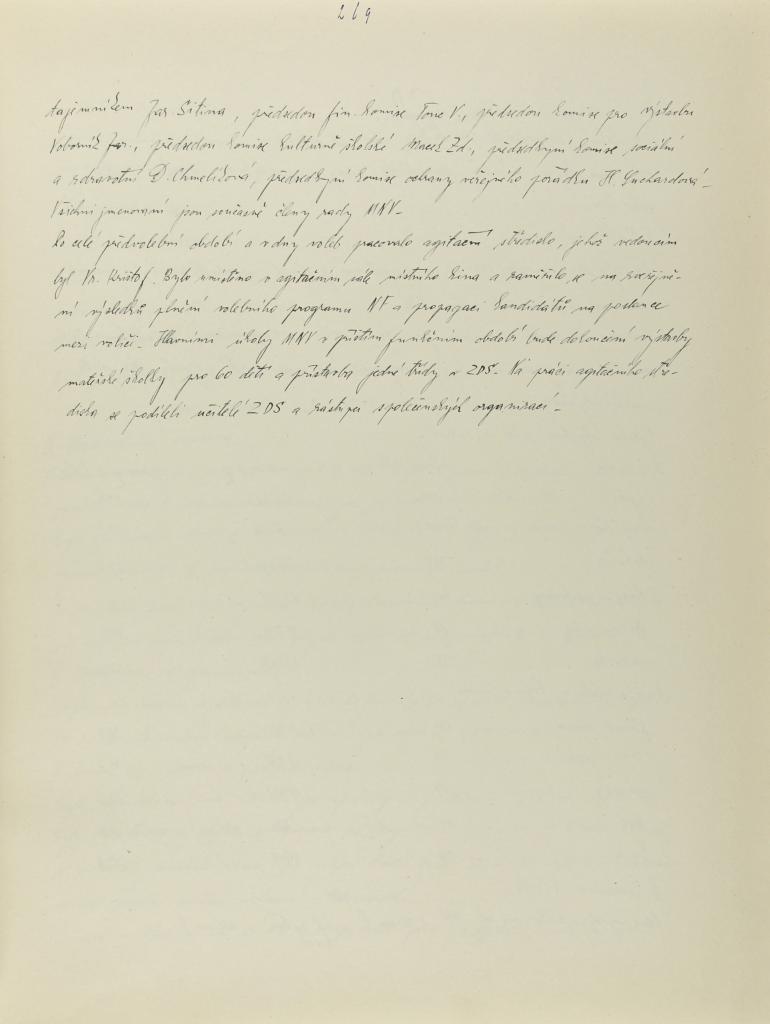 269
tajemníkem Jar. Sitina, předsedou fin. komise Tone V., předsedou komise pro výstavbu
Voborník Jar., předsedou komise kulturně školské Macek Zd., předsedkyní komise sociální
a zdravotní D. Chmelíčová, předsedkyní komise ochrany veřejného pořádku H. Suchardová.
Všichni jmenovaní jsou současně členy rady MNV.
Po celé předvolební období a v dny voleb pracovalo agitační středisko, jehož vedoucím
byl Vr. Krištof. Bylo umístěno v agitačním sále místního kina a zaměřilo se na zveřejně-
ní výsledků plnění volebního programu NF a propagaci kandidátů na poslance
mezi voliči. Hlavními úkoly MNV v příštím funkčním období bude dokončení výstavby
mateřské školky pro 60 dětí a přístavba jedné třídy v ZDŠ. Na práci agitačního stře-
diska se podíleli učitelé ZDŠ a zástupci společenských organizací.